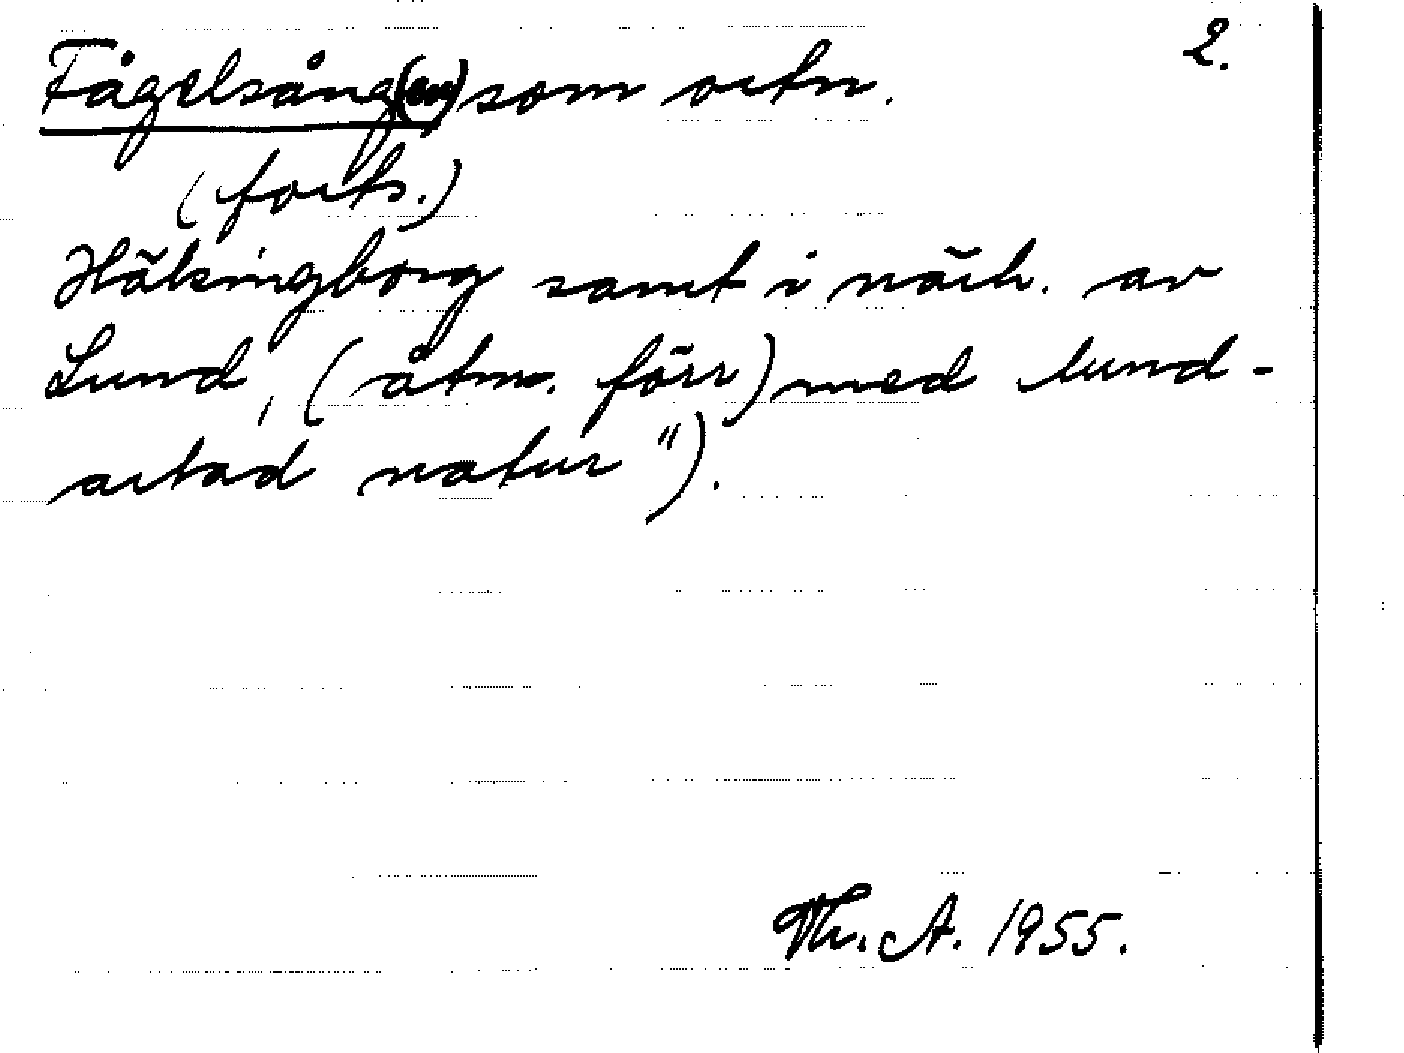 Fågelsång(en) som ortn. 2.
(forts.)
Hälsingborg samt i närh. av
Lund, (åtm. förr) med lund-
artad natur").
Th. A. 1955.